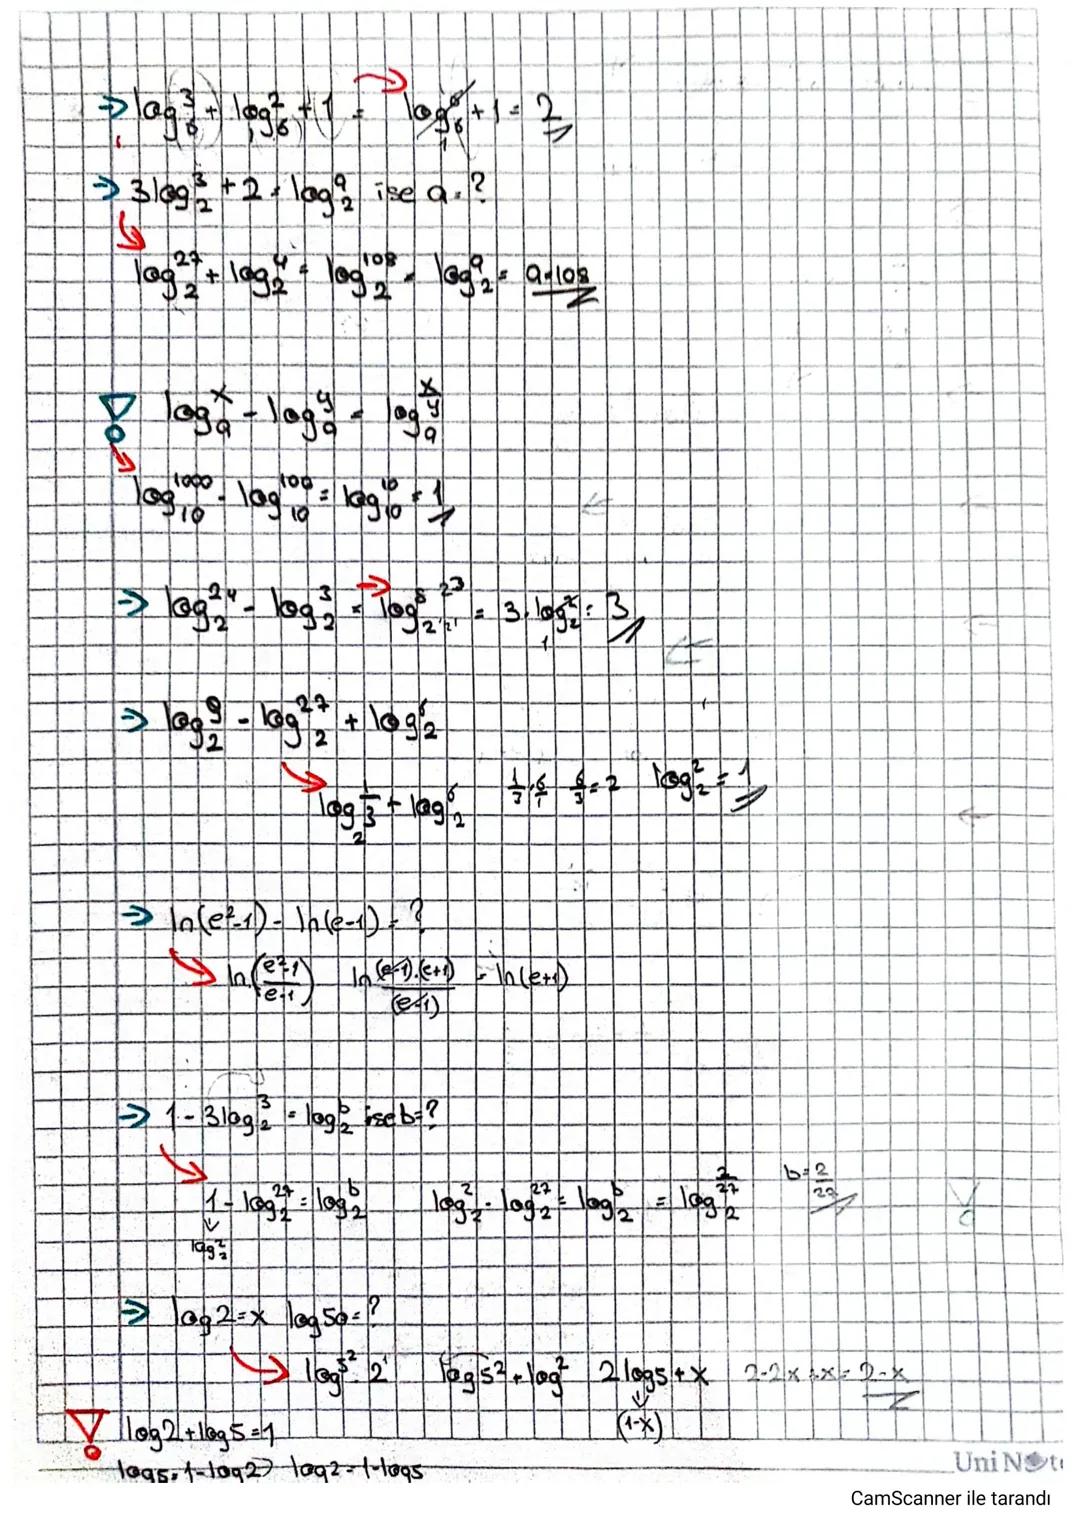 ⇒ log₆³ + log₆² + 1 = log₆⁶ + 1 = 2
⇒ 3log₂³ + 2 = log₂ᵃ ise a = ?
log₂²⁷ + log₂⁴ = log₂¹⁰⁸ = log₂ᵃ = a=108
logₐˣ - logₐʸ = logₐ^(x/y)
log₁₀¹⁰⁰⁰ - log₁₀¹⁰⁰ = log₁₀¹⁰ = 1
⇒ log₂²⁴ - log₂³ = log₂⁸ 2³ = 3·log₂² = 3
⇒ log₂⁹ - log₂²⁷ + log₂⁶
log₂^(1/3) + log₂⁶ 1/3 · 6/1 6/3 = 2 log₂² = 1
⇒ ln(e²-1) - ln(e-1) = ?
ln(e²-1/e-1) ln (e-1).(e+1)/(e-1) = ln(e+1)
⇒ 1 - 3log₂³ = log₂ᵇ ise b=?
1 - log₂²⁷ = log₂ᵇ log₂² - log₂²⁷ = log₂ᵇ = log₂^(2/27) b=2/27
log₂²
⇒ log2=x log50=?
log5²·2¹ log5² + log2 2log5+x 2-2x+x=2-x
(1-x)
log2+log5=1
log5=1-log2 log2=1-log5
UniNot
CamScanner ile tarandı